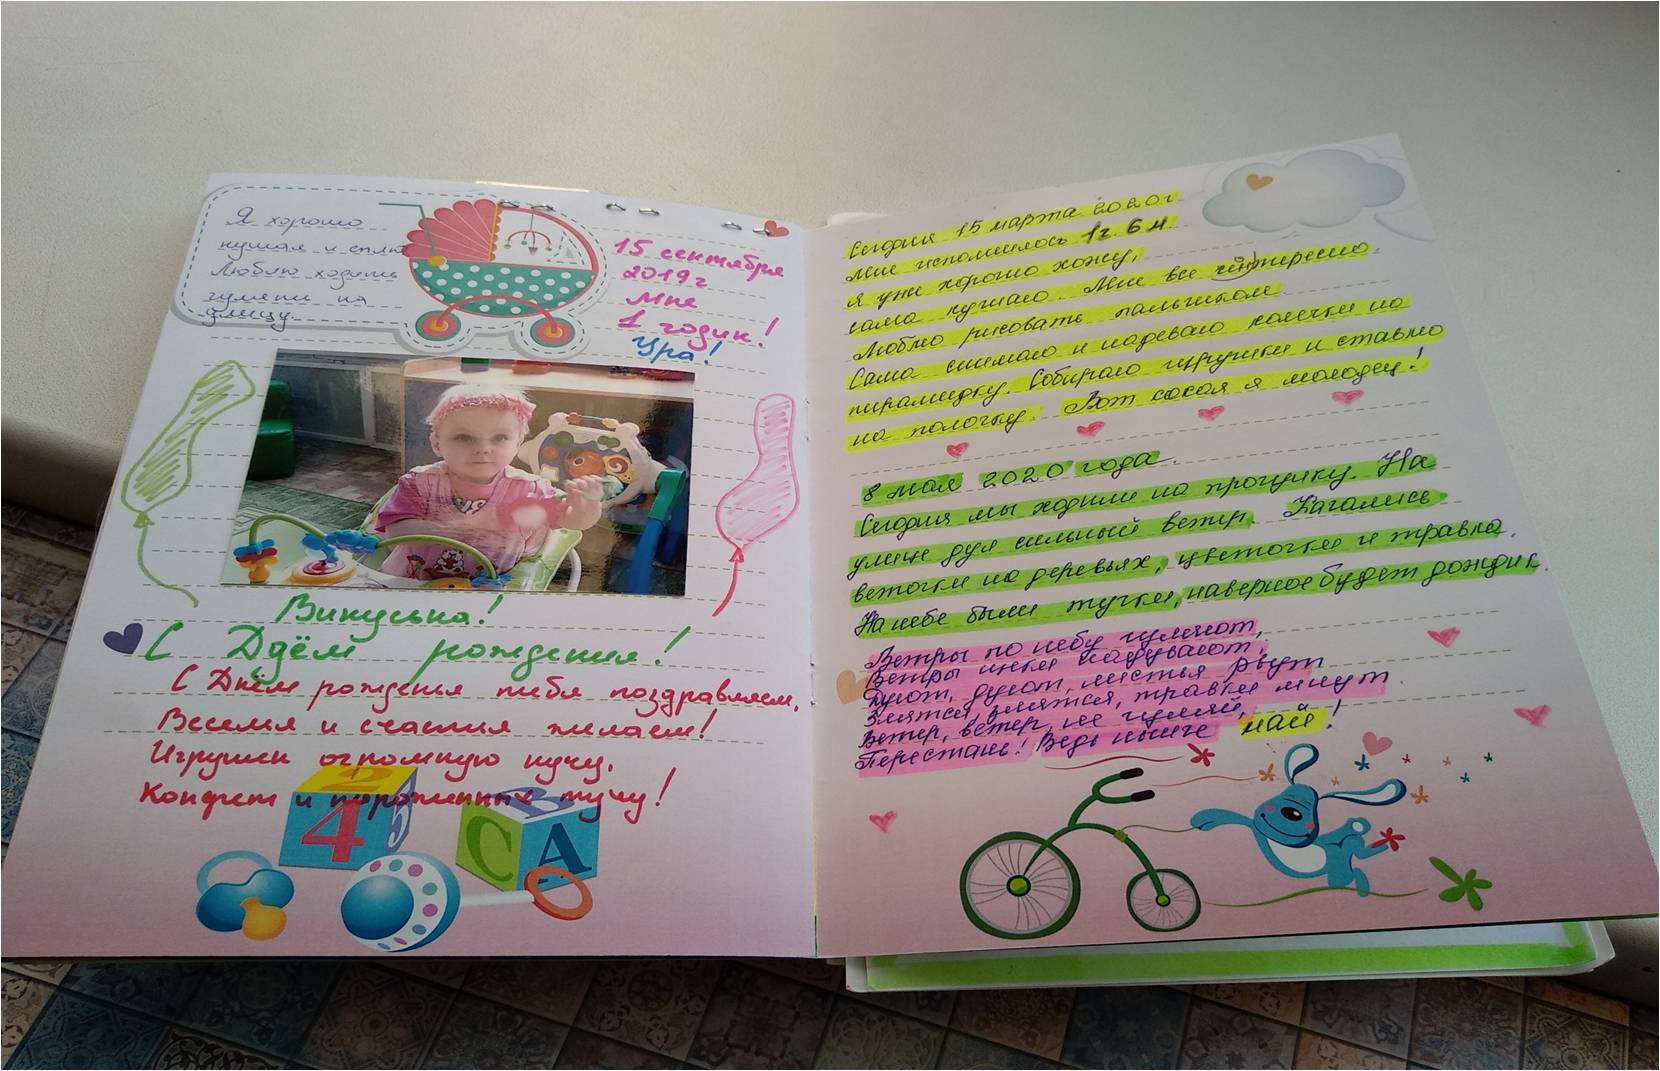 Я хорошо
кушаю и сплю
Люблю ходить
гулять на
улицу.
15 сентября
2019 г
мне
1 годик!
Ура!
Викуська!
С Днём рождения!
С Днём рожденья тебя поздравляем,
Веселья и счастья желаем!
Игрушек огромную кучу,
Конфет и мороженных тучу!
2
4
5
C
A
Сегодня 15 марта 2020 г
мне исполнилось 1 г. 6 м
я уже хорошо хожу,
сама кушаю. Мне все интиресно.
Люблю рисовать пальчиком
Сама снимаю и надеваю колечки на
пирамидку. Собираю игрушки и ставлю
на полочку. Вот какая я молодец!
8 мая 2020 года.
Сегодня мы ходили на прогулку. На
улице дул сильный ветер. Качались
веточки на деревьях, цветочки и травка.
На небе были тучки, наверное будет дождик.
Ветры по небу гуляют,
Ветры щеки надувают,
Дуют, дуют, листья рвут
Злятся, злятся, травки мнут.
Ветер, ветер, не гуляй,
Перестань! Ведь нынче май!